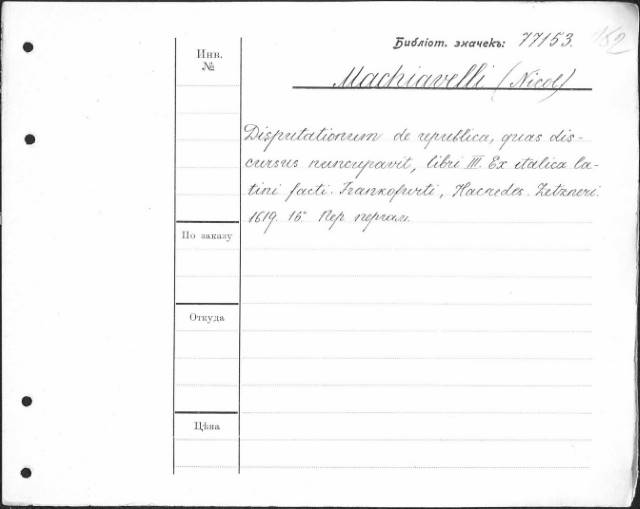 Библіот. значекъ: 77153. 152
Инв. №
Machiavelli (Nicol)
Disputationum de republica, quas dis-
cursus nuncupavit, libri III. Ex italica la-
tini facti. Frankofurti, Haeredes. Zetzneri.
1619. 16° Пер пергам.
По заказу
Откуда
Цѣна